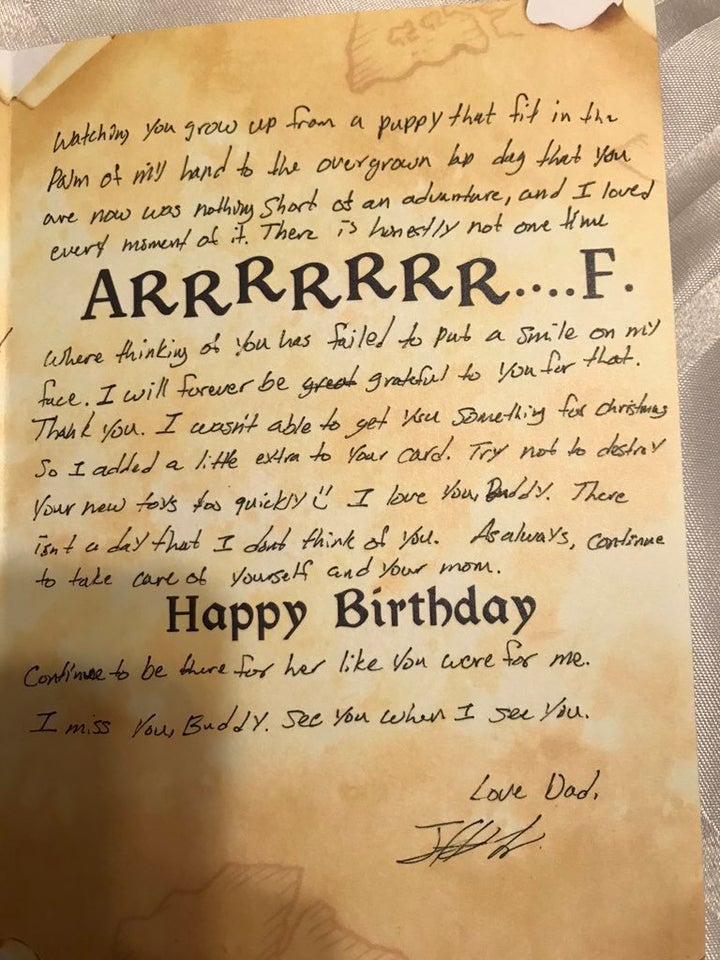 Watching you grow up from a puppy that fit in the
palm of my hand to the overgrown lap dog that you
are now was nothing short of an adventure, and I loved
every moment of it. There is honestly not one time
ARRRRRRRR....F.
Where thinking of you has failed to put a smile on my
face. I will forever be great grateful to you for that.
Thank you. I wasn't able to get you something for christmas
So I added a little extra to your card. Try not to destroy
your new toys too quickly :) I love you, Buddy. There
isn't a day that I dont think of you. As always, continue
to take care of yourself and your mom.
Happy Birthday
Continue to be there for her like you were for me.
I miss you, Buddy. See you when I see you.
Love Dad,